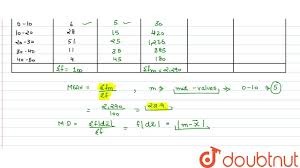 0-10 6 ✓ 5 ✓ 30
10-20 28 15 420
20-30 51 25
30-40 11 35 385
40-50 4 45 180
Σf = 100 Σfm = 2,290
Mean = Σfm/Σf , m → mid-values → 0-10 → 5
= 2,290/100 = 22.9
M.D = Σf|dx̄|/Σf = f|dx̄| = |m-x̄|
doubtnut